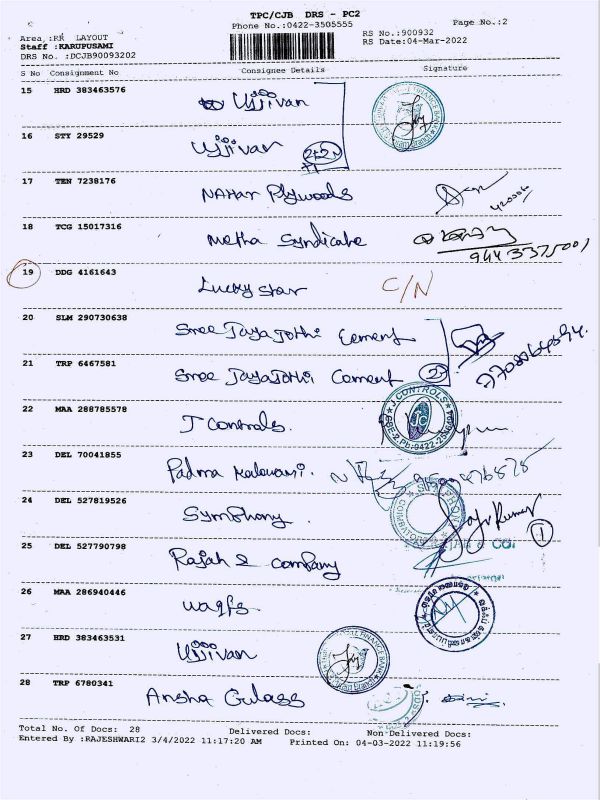 TPC/CJB DRS - PC2
Phone No.:0422-3505555
Page No.:2
Area :RR LAYOUT
RS No.:900932
Staff :KARUPUSAMI
RS Date:04-Mar-2022
DRS No. :DCJB90093202
S No Consignment No Consignee Details Signature
15 HRD 383463576
Ujjivan
16 STY 29529
Ujjivan
17 TEN 7238176
NAHar Plywoods
18 TCG 15017316
Metha Syndicate
9443375001
19 DDG 4161643
Lucky Star C/N
20 SLM 290730638
Sree JayaJothi Cement
21 TRP 6467581
Sree JayaJothi Cement
22 MAA 288785578
J Controls.
J.CONTROLS
23 DEL 70041855
Padma Kalavani.
24 DEL 527819526
Symphony. 1
25 DEL 527790798
Rajah & Company
26 MAA 286940446
waqfs
27 HRD 383463531
Ujjivan
28 TRP 6780341
Ansha Gulass
Total No. Of Docs: 28 Delivered Docs: Non Delivered Docs:
Entered By :RAJESHWARI2 3/4/2022 11:17:20 AM Printed On: 04-03-2022 11:19:56